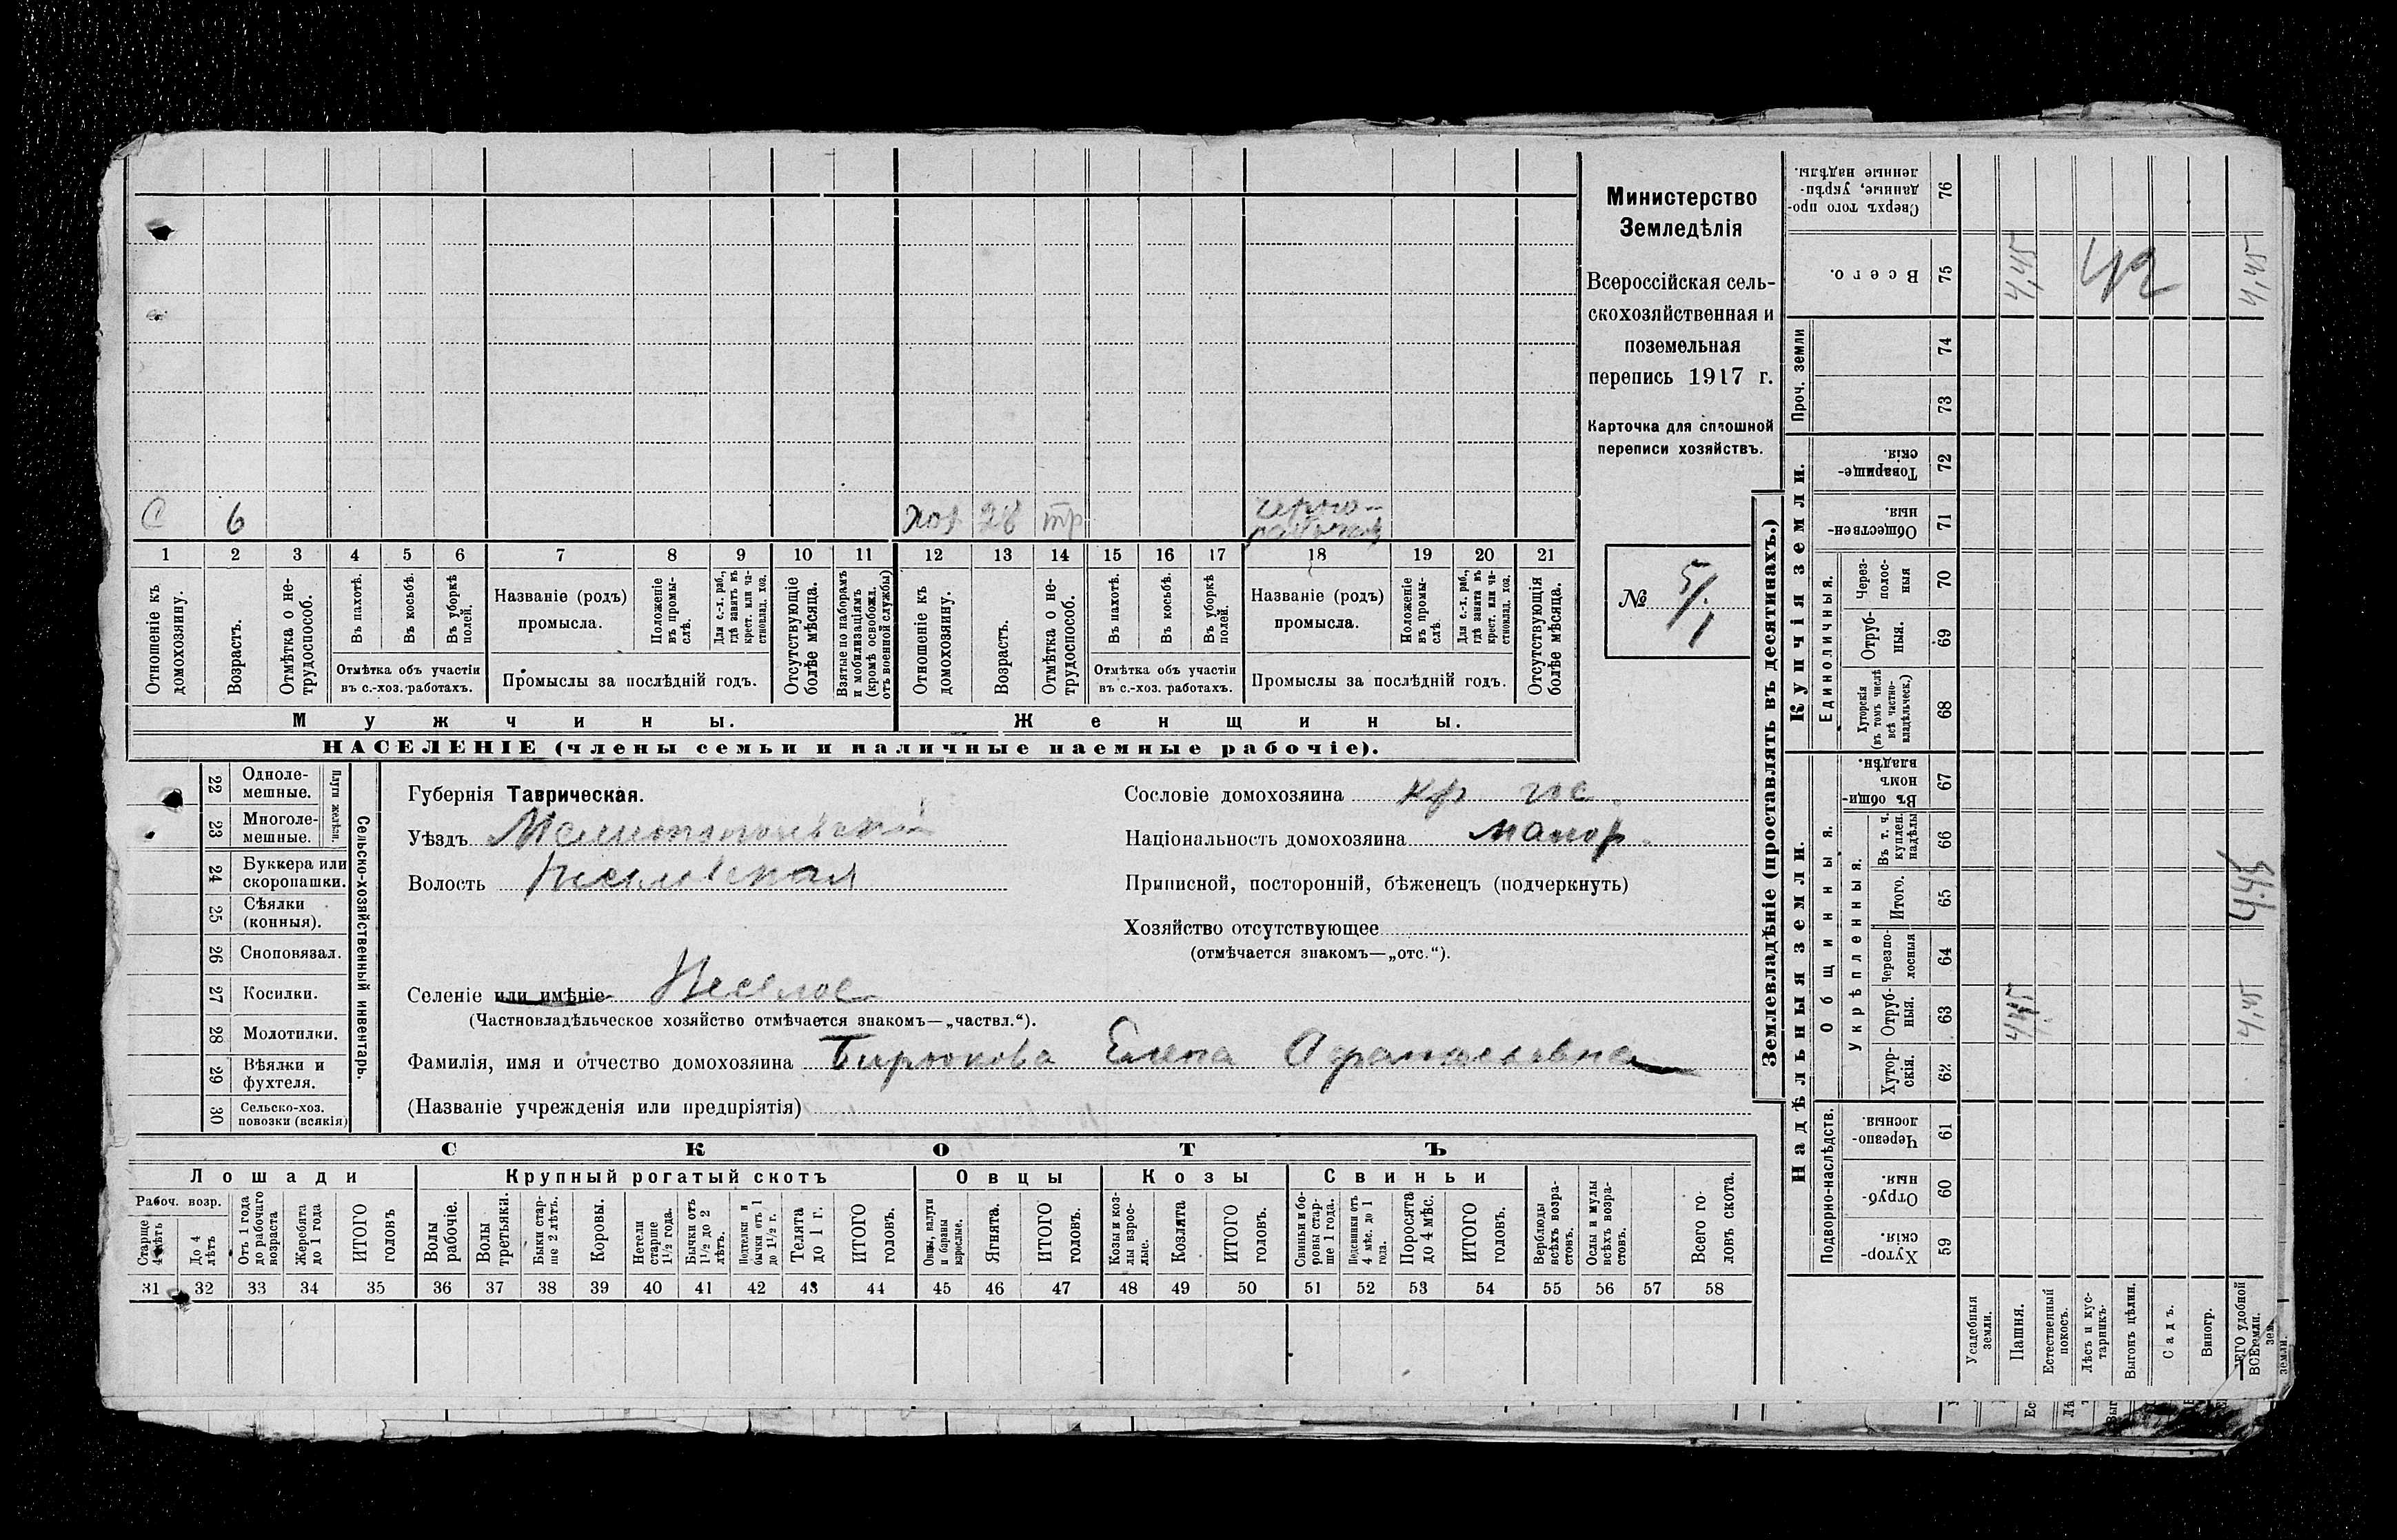 Министерство
Земледѣлія
Всероссійская сель-
скохозяйственная и
поземельная
перепись 1917 г.
Карточка для сплошной
переписи хозяйствъ.
№ 5/1
С 6 хоз 28 тр черно-
рабочая
1 2 3 4 5 6 7 8 9 10 11 12 13 14 15 16 17 18 19 20 21
Отношеніе къ домохозяину.
Возрастъ.
Отмѣтка о не-трудоспособ.
Въ пахотѣ.
Въ косьбѣ.
Въ уборкѣ полей.
Отмѣтка объ участіи
въ с.-хоз. работахъ.
Названіе (родъ)
промысла.
Положеніе въ промы-слѣ.
Для с.-х. раб., гдѣ занятъ въ крест. или ча-стновлад. хоз.
Промыслы за послѣдній годъ.
Отсутствующіе болѣе мѣсяца.
Взятые по наборамъ и мобилизаціямъ (кромѣ освобожд. отъ военной службы)
Отношеніе къ домохозяину.
Возрастъ.
Отмѣтка о не-трудоспособ.
Въ пахотѣ.
Въ косьбѣ.
Въ уборкѣ полей.
Отмѣтка объ участіи
въ с.-хоз. работахъ.
Названіе (родъ)
промысла.
Положеніе въ промы-слѣ.
Для с.-х. раб., гдѣ занята въ крест. или ча-стновлад. хоз.
Промыслы за послѣдній годъ.
Отсутствующія болѣе мѣсяца.
Мужчины. Женщины.
НАСЕЛЕНІЕ (члены семьи и наличные наемные рабочіе).
22 Одноле-мешные.
23 Многоле-мешные.
Плуги желѣзн.
24 Буккера или скоропашки.
25 Сѣялки (конныя).
26 Сноповязал.
27 Косилки.
28 Молотилки.
29 Вѣялки и фухтеля.
30 Сельско-хоз. повозки (всякія)
Сельско-хозяйственный инвентарь.
Губернія Таврическая.
Уѣздъ Мелитопольскій
Волость Веселовская
Селеніе или имѣніе Веселое
(Частновладѣльческое хозяйство отмѣчается знакомъ—„частвл.“).
Фамилія, имя и отчество домохозяина Бирюкова Елена
(Названіе учрежденія или предпріятія)
Сословіе домохозяина кр
Національность домохозяина малор.
Приписной, посторонній, бѣженецъ (подчеркнуть)
Хозяйство отсутствующее
(отмѣчается знакомъ—„отс.“).
СКОТЪ
Лошади Крупный рогатый скотъ Овцы Козы Свиньи
Рабоч. возр.
Старше 4 лѣтъ
До 4 лѣтъ
Отъ 1 года до рабочаго возраста
Жеребята до 1 года
ИТОГО головъ
Волы рабочіе.
Волы третьяки.
Быки стар-ше 2 лѣтъ.
Коровы.
Нетели старше 1½ года.
Бычки отъ 1½ до 2 лѣтъ.
Подтелки и бычки отъ 1 до 1½ г.
Телята до 1 г.
ИТОГО головъ.
Овцы, валухи и бараны взрослые.
Ягнята.
ИТОГО головъ.
Козы и коз-лы взрос-лые.
Козлята
ИТОГО головъ.
Свиньи и бо-ровы стар-ше 1 года.
Подсвинки отъ 4 мѣс. до 1 года.
Поросята до 4 мѣс.
ИТОГО головъ.
Верблюды всѣхъ возра-стовъ.
Ослы и мулы всѣхъ возра-стовъ.
Всего го-ловъ скота.
31 32 33 34 35 36 37 38 39 40 41 42 43 44 45 46 47 48 49 50 51 52 53 54 55 56 57 58
Землевладѣніе (проставлять въ десятинахъ.)
Надѣльныя земли. Купчія земли. Проч. земли
Подворно-наслѣдств.
Общинныя.
Укрѣпленныя.
Единоличныя.
Сверхъ того про-данные, укрѣп-ленные надѣлы. 76
Всего. 75 4,45 42 4,45
74
73
Товарище-скія. 72
Обществен-ныя. 71
Через-полос-ныя 70
Отруб-ныя. 69
Хуторскія (въ томъ числѣ всѣ частно-владѣльческ.) 68
Въ общин-номъ владѣн. 67
Въ т. ч. куплен. надѣлы 66
Итого. 65 4,45
Черезпо-лосныя 64
Отруб-ныя. 63 4,45 4,45
Хутор-скія. 62
Черезпо-лосныя 61
Отруб-ныя. 60
Хутор-скія. 59
Усадебныя земли.
Пашня.
Естественный покосъ.
Лѣсъ и кус-тарникъ.
Выгонъ цѣлин.
Садъ.
Виногр.